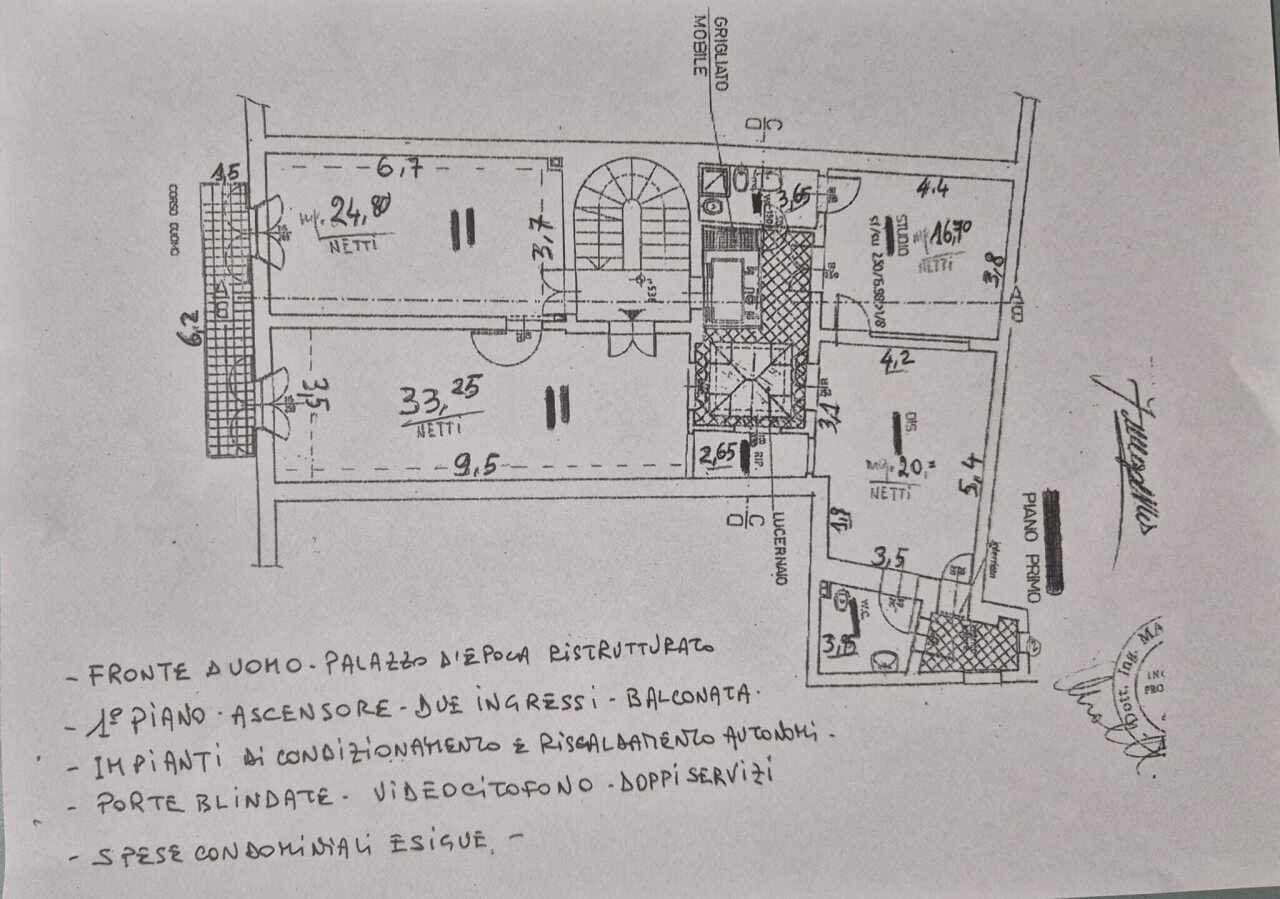 GRIGLIATO
MOBILE
C
D
1,5
6,7
CORSO DUOMO
mq. 24,80
NETTI
3,7
6,2
3,65
4.4
STUDIO
mq 16,70
NETTI
3,8
3,5
33,25
NETTI
9,5
2,65
RIP.
3,1
4,2
DIS.
mq. 20,=
NETTI
5,4
C
D
LUCERNAIO
1,8
3,5
PIANO PRIMO
W.C.
3,95
Dott. Ing. MA
- FRONTE DUOMO - PALAZZO D'EPOCA RISTRUTTURATO
- 1° PIANO - ASCENSORE - DUE INGRESSI - BALCONATA.
- IMPIANTI DI CONDIZIONAMENTO E RISCALDAMENTO AUTONOMI.
- PORTE BLINDATE - VIDEOCITOFONO - DOPPI SERVIZI
- SPESE CONDOMINIALI ESIGUE. -